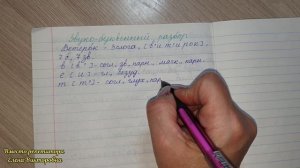 Звуко-буквенный разбор
Ветерок - 3слога, [в'и т и р о к],
7 б., 7 зв.
в [в'] - согл., зв. парн., мягк. парн.
е [и] - гл., безуд.
т [т'] - согл., глух. пар
Вместо репетитора
Елена Викторовна